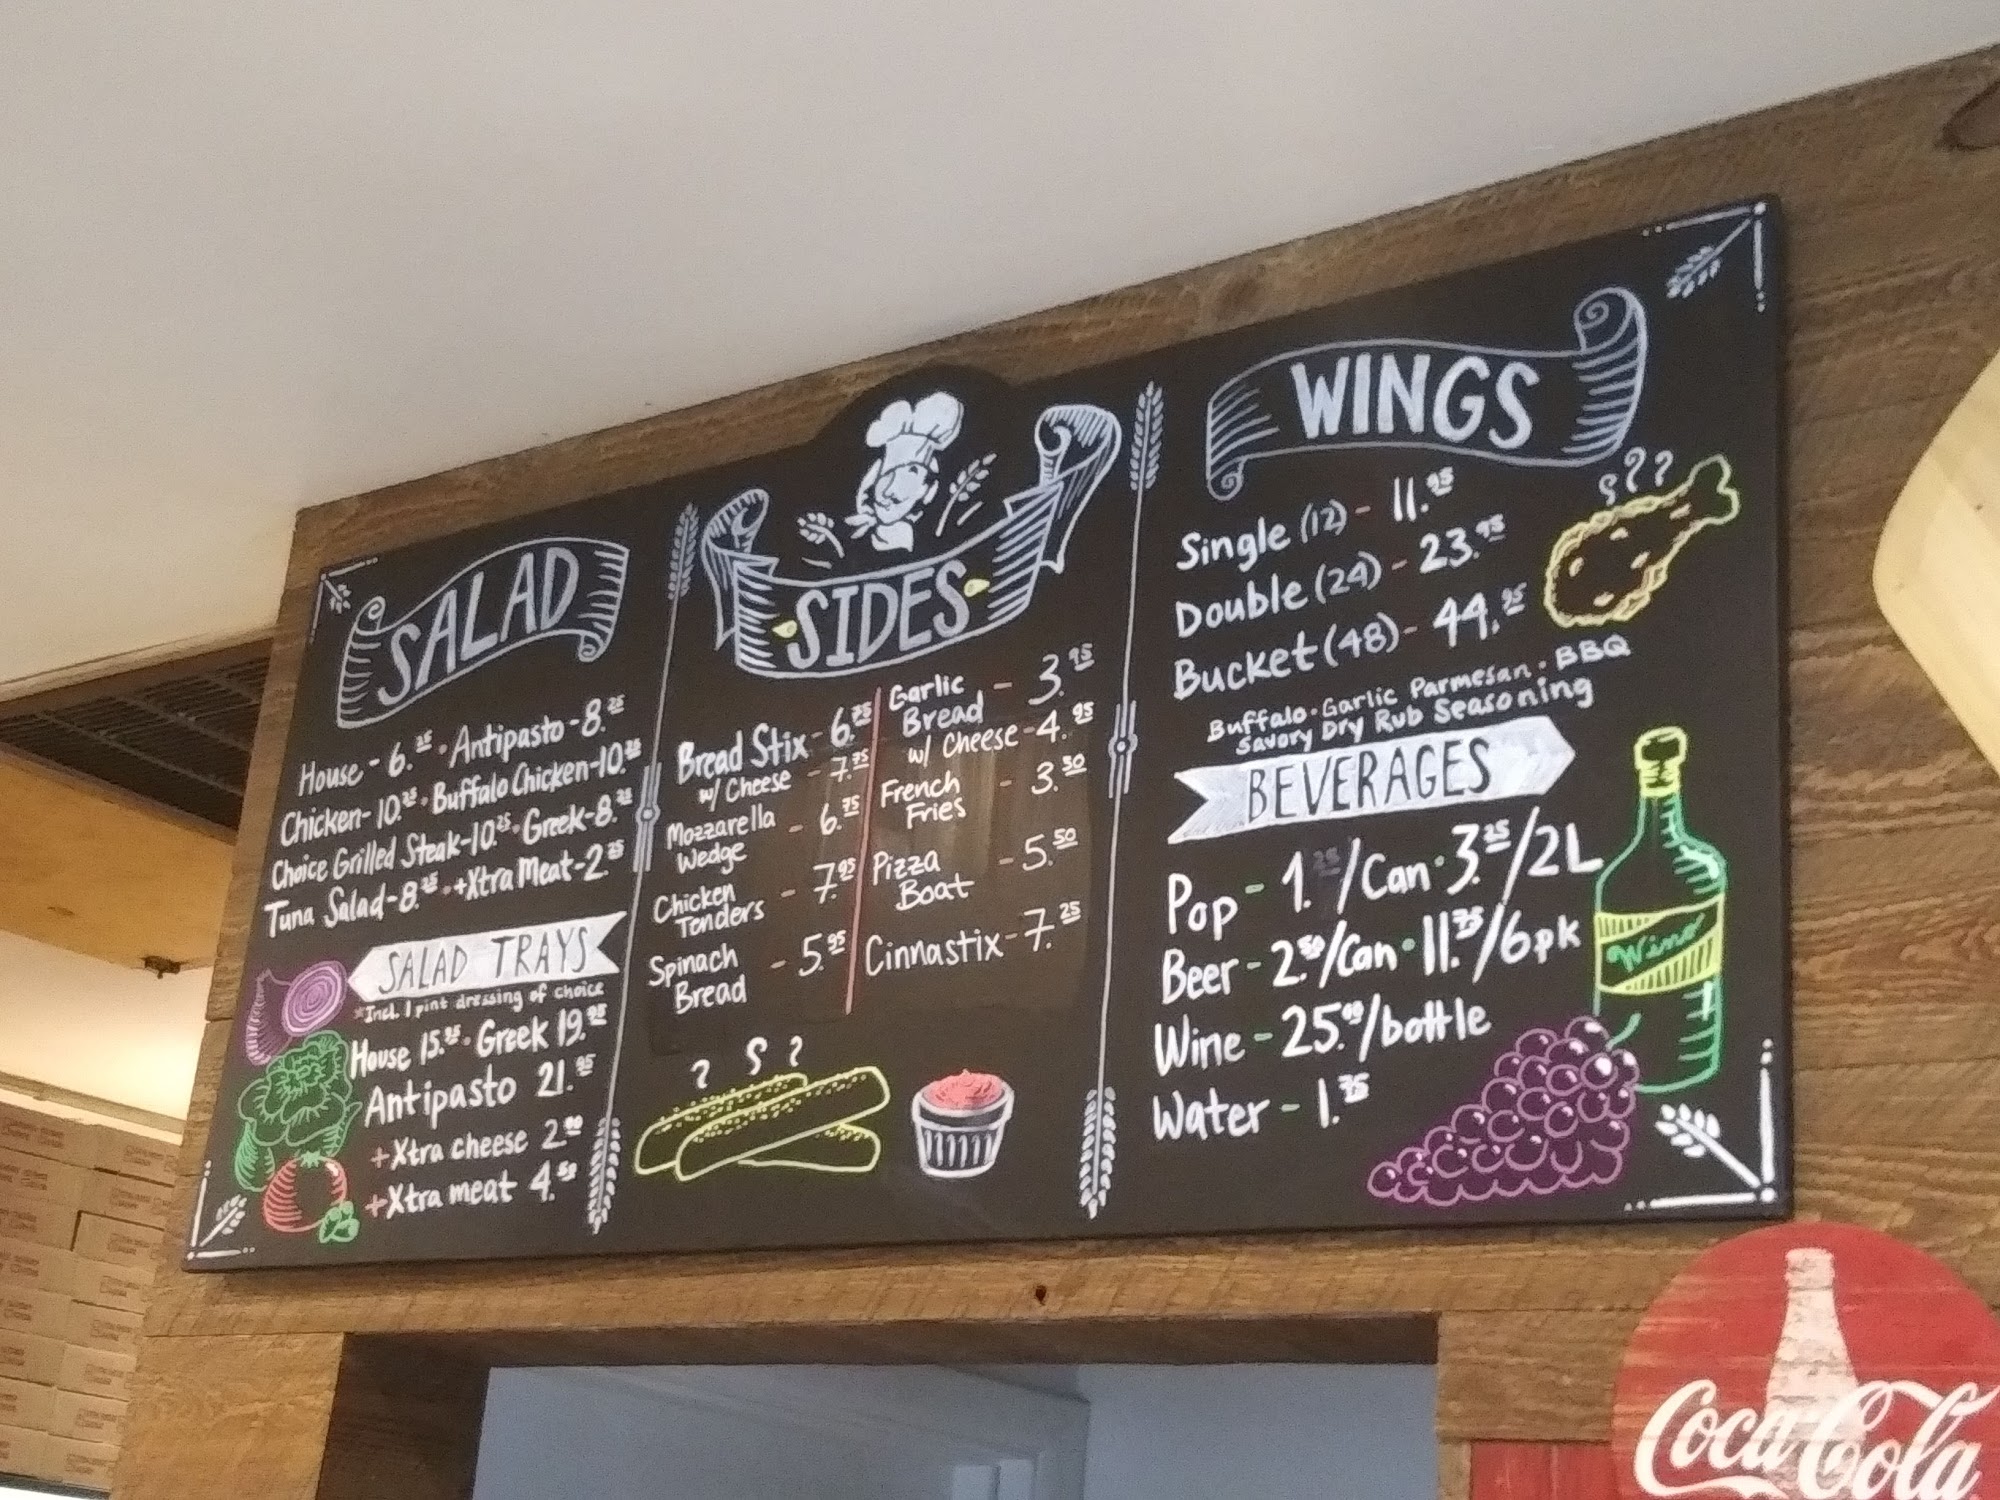 SALAD
House - 6.25 · Antipasto - 8.25
Chicken - 10.25 · Buffalo Chicken - 10.25
Choice Grilled Steak - 10.25 · Greek - 8.25
Tuna Salad - 8.25 · +Xtra Meat - 2.25
SALAD TRAYS
*Incl. 1 pint dressing of choice
House 15.95 · Greek 19.95
Antipasto 21.95
+Xtra cheese 2.00
+Xtra meat 4.50
SIDES
Bread Stix - 6.75
w/ Cheese - 7.75
Mozzarella
Wedge - 6.75
Chicken
Tenders - 7.95
Spinach
Bread - 5.95
Garlic
Bread - 3.95
w/ Cheese - 4.95
French
Fries - 3.50
Pizza
Boat - 5.50
Cinnastix - 7.25
WINGS
Single (12) - 11.95
Double (24) - 23.95
Bucket (48) - 44.95
Buffalo · Garlic Parmesan · BBQ
Savory Dry Rub Seasoning
BEVERAGES
Pop - 1.25/Can · 3.25/2L
Beer - 2.50/Can · 11.75/6pk
Wine - 25.00/bottle
Water - 1.75
Wino
Coca-Cola